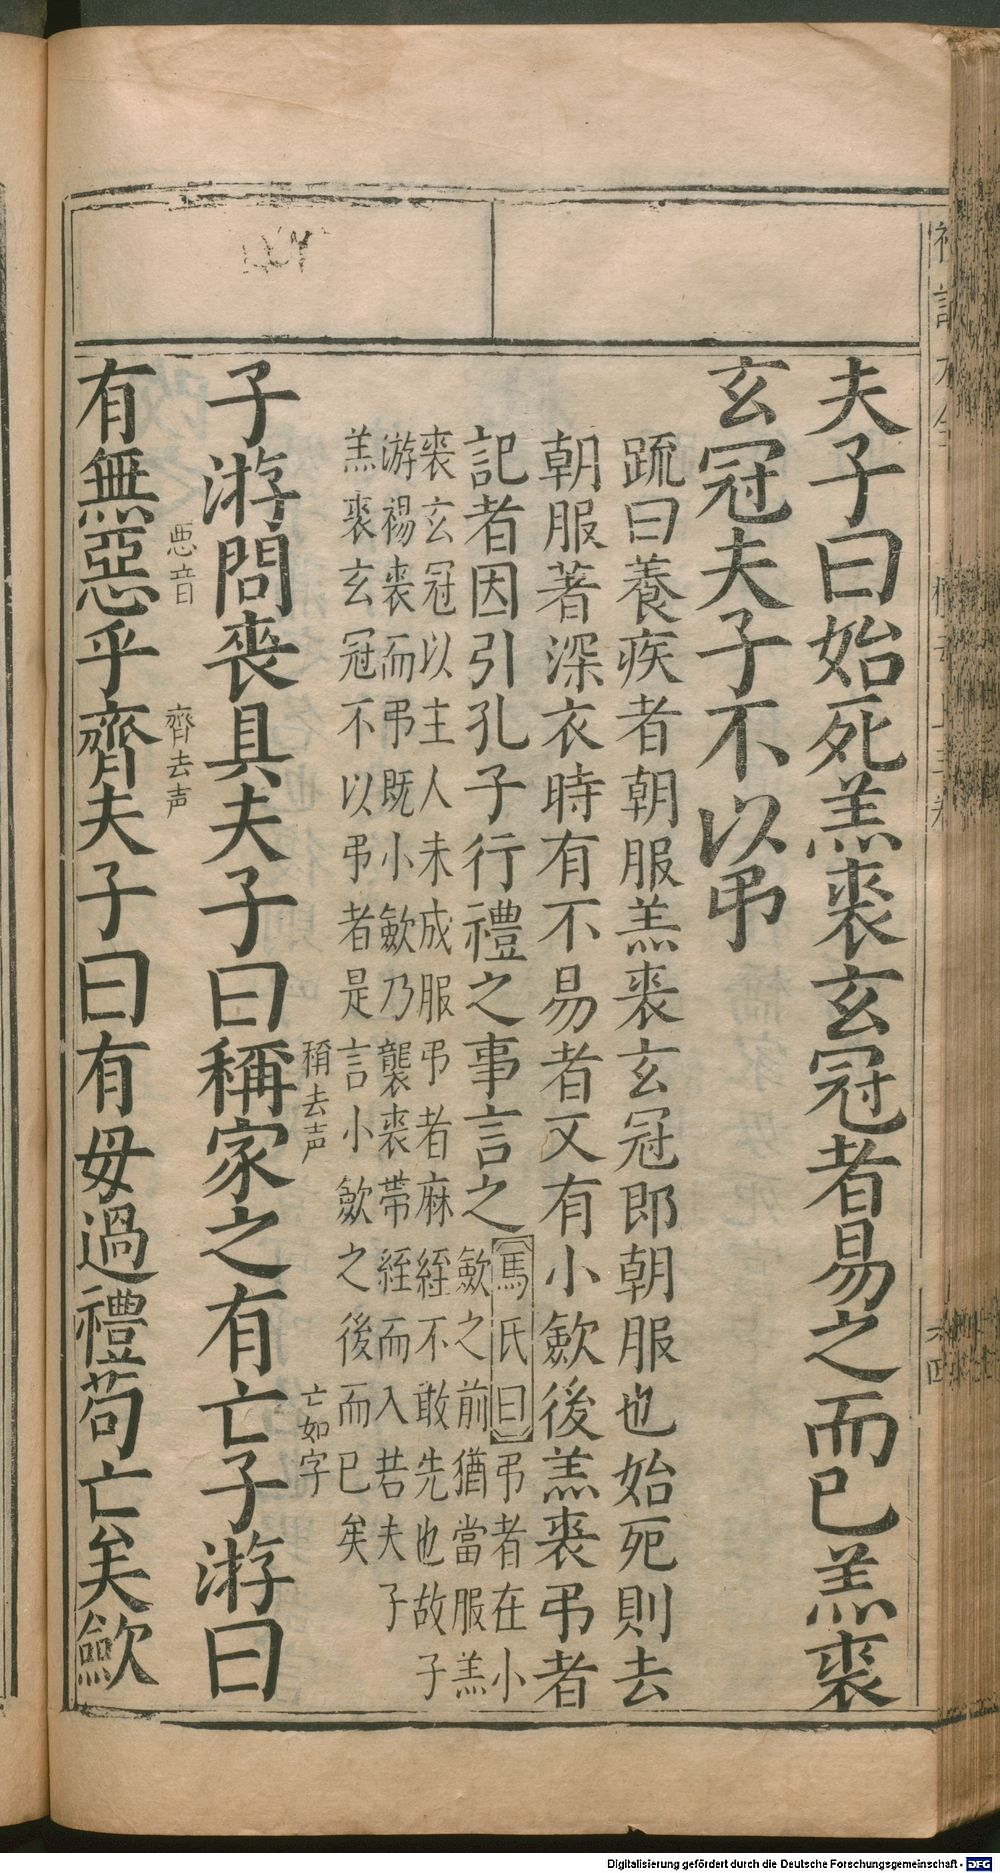 夫子曰始死羔裘玄冠者易之而已羔裘
玄冠夫子不以弔
䟽曰養疾者朝服羔裘玄冠即朝服也始死則去
朝服著深衣時有不易者又有小歛後羔裘弔者
記者因引孔子行禮之事言之
馬氏曰弔者在小
歛之前猶當服羔
裘玄冠以主人未成服弔者麻絰不敢先也故子
游裼裘而弔既小歛乃襲裘帶絰而入若夫子
羔裘玄冠不以弔者是言小歛之後而已矣
稱去声
亡如字
子游問喪具夫子曰稱家之有亡子游曰
惡音
齊去声
有無惡乎齊夫子曰有毋過禮苟亡矣斂
Digitalisierung gefördert durch die Deutsche Forschungsgemeinschaft - DFG